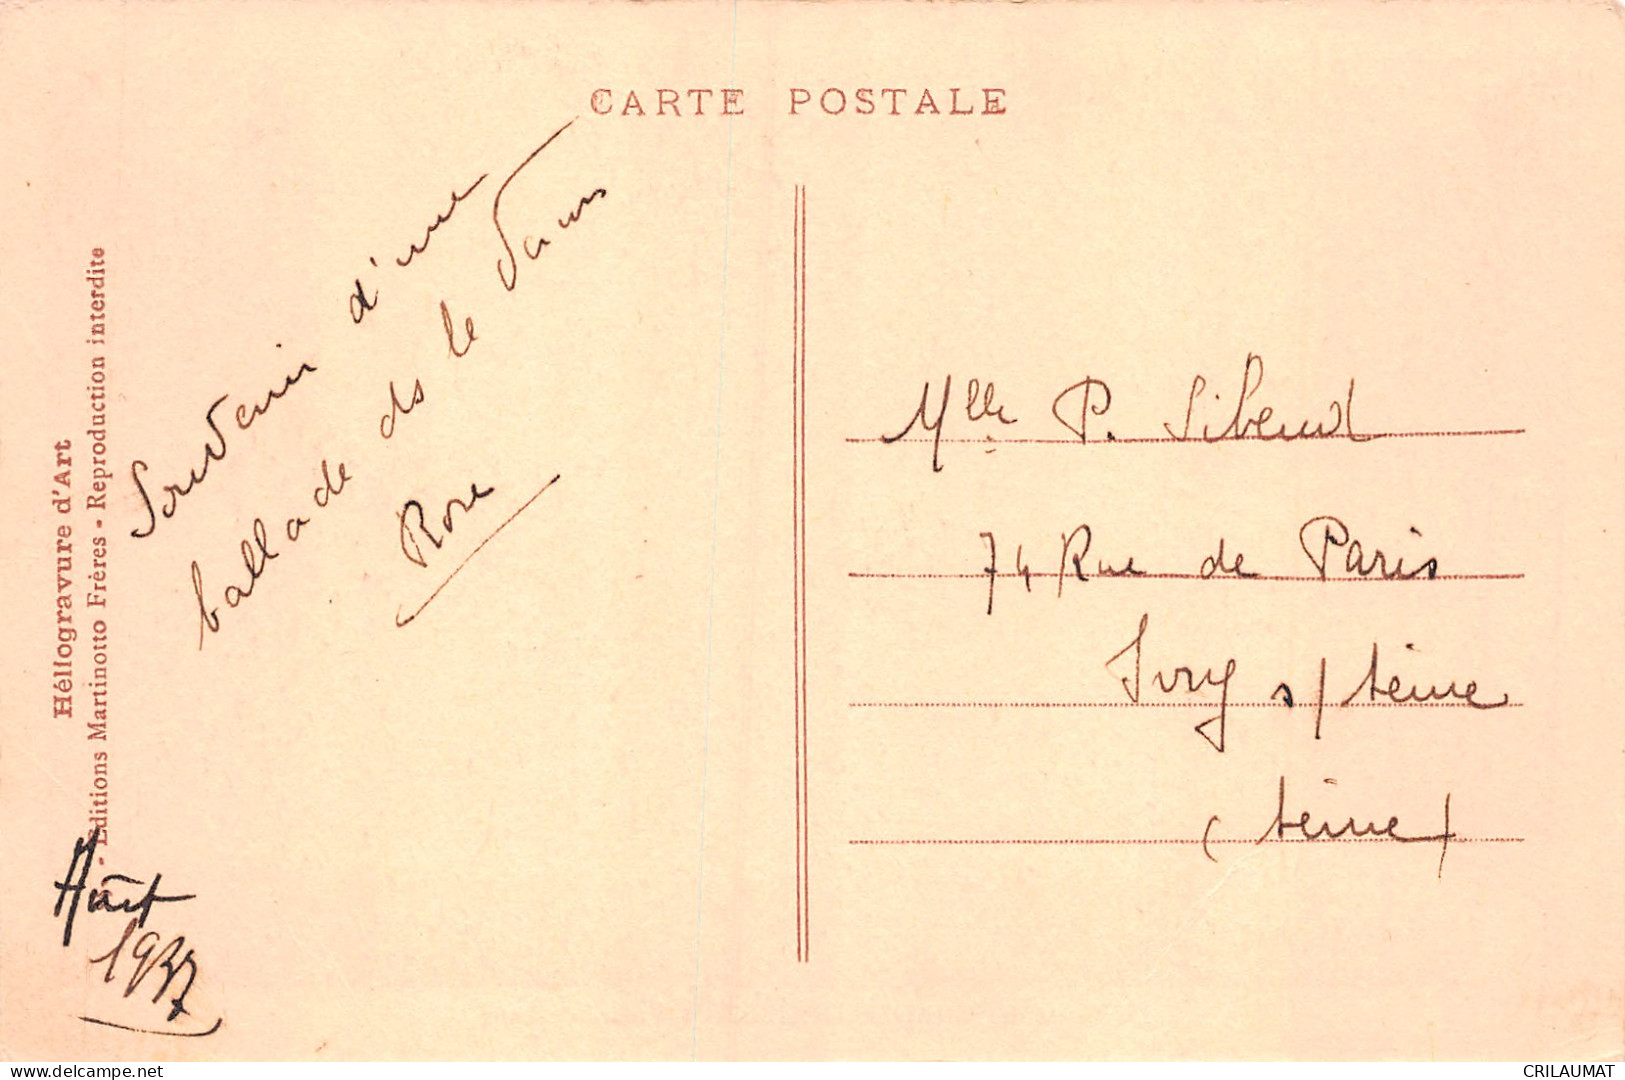 CARTE POSTALE
Souvenir d'une
ballade ds le
Rose
Mlle P.
74 Rue de Paris
Ivry s/ seine
(seine)
Héliogravure d'Art
- Editions Martinotto Frères - Reproduction interdite
Août
1937
delcampe.net
CRILAUMAT